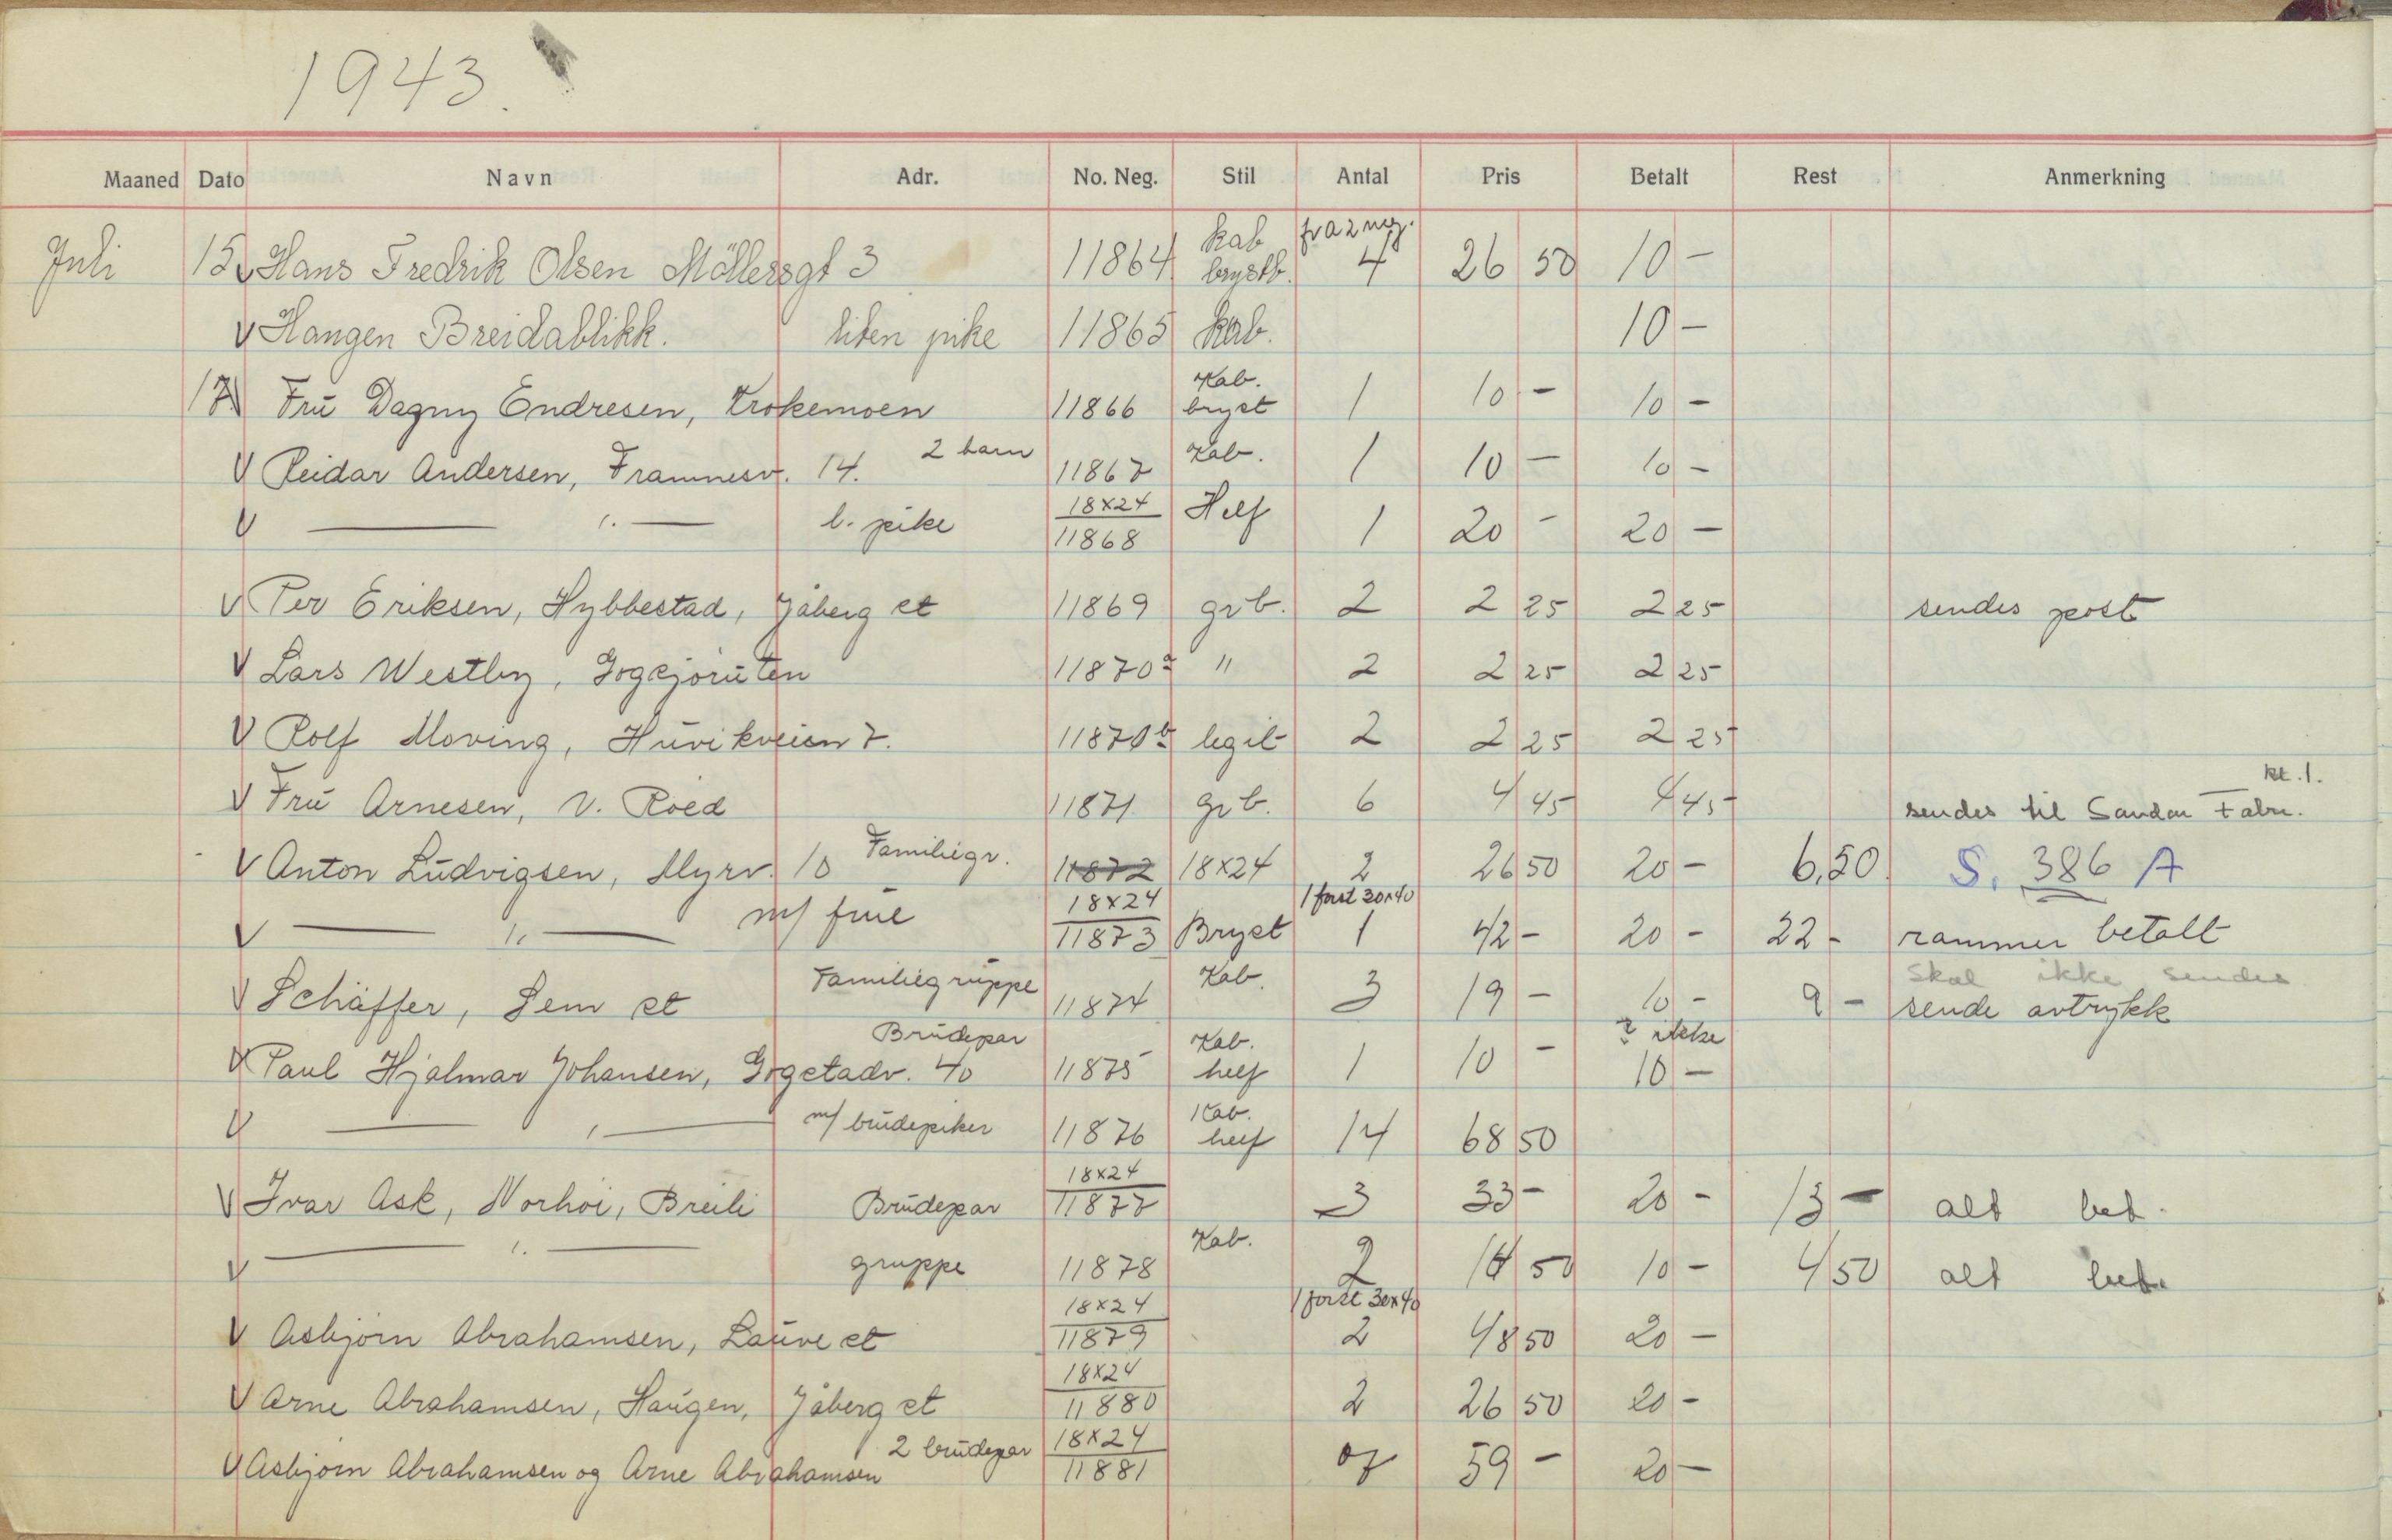 1943.
Maaned Dato Navn Adr. No. Neg. Stil Antal Pris Betalt Rest Anmerkning
Juli 15 V Hans Fredrik Olsen Möllersgt 3 11864 kab brystb. fra 2 neg. 4 26 50 10 -
V Haugen Breidablikk. liten pike 11865 kab. 10 -
17 V Frü Dagny Endresen, Krokemoen 11866 Kab. bryst 1 10 - 10 -
V Reidar Andersen, Framnesv. 14. 2 barn 11867 Kab. 1 10 - 10 -
V — " — l. pike 18x24 11868 Helf 1 20 - 20 -
V Per Eriksen, Hybbestad, Jåberg st 11869 grb. 2 2 25 2 25 sendes post
V Lars Westby, Gogsjorüten 11870a " 2 2 25 2 25
V Rolf Moving, Hüvikveien 7. 11870b legit 2 2 25 2 25
V Frü Arnesen, V. Röed 11871 grb. 6 4 45 4 45 sendes til Sandar Fabr. kt. 1.
V Anton Lüdvigsen, Myrv. 10 Familiegr. 11872 18x24 2 26 50 20 - 6,50 S. 386 A
V — " — m/ früe 18x24 11873 Bryst 1 forst 30x40 1 42 - 20 - 22 - rammer betalt
V Schäffer, Sem st Familiegrüppe 11874 Kab. 3 19 - 10 - 9 - Skal ikke sendes
sende avtrykk
V Paul Hjalmar Johansen, Gogstadv. 40 Brüdepar 11875 Kab. helf 1 10 - ? ikke 10 -
V — " — m/ brüdepiker 11876 Kab. helf 14 68 50
V Ivar Ask, Norhöi, Breili Brüdepar 18x24 11877 3 33 - 20 - 13 - alt bet.
V — " — gruppe 11878 Kab. 2 14 50 10 - 4 50 alt bet.
V Asbjörn Abrahamsen, Laüve st 18x24 11879 1 forst 30x40 2 48 50 20 -
V Arne Abrahamsen, Haügen, Jåberg st 18x24 11880 2 26 50 20 -
V Asbjörn Abrahamsen og Arne Abrahamsen 2 brüdepar 18x24 11881 59 - 20 -